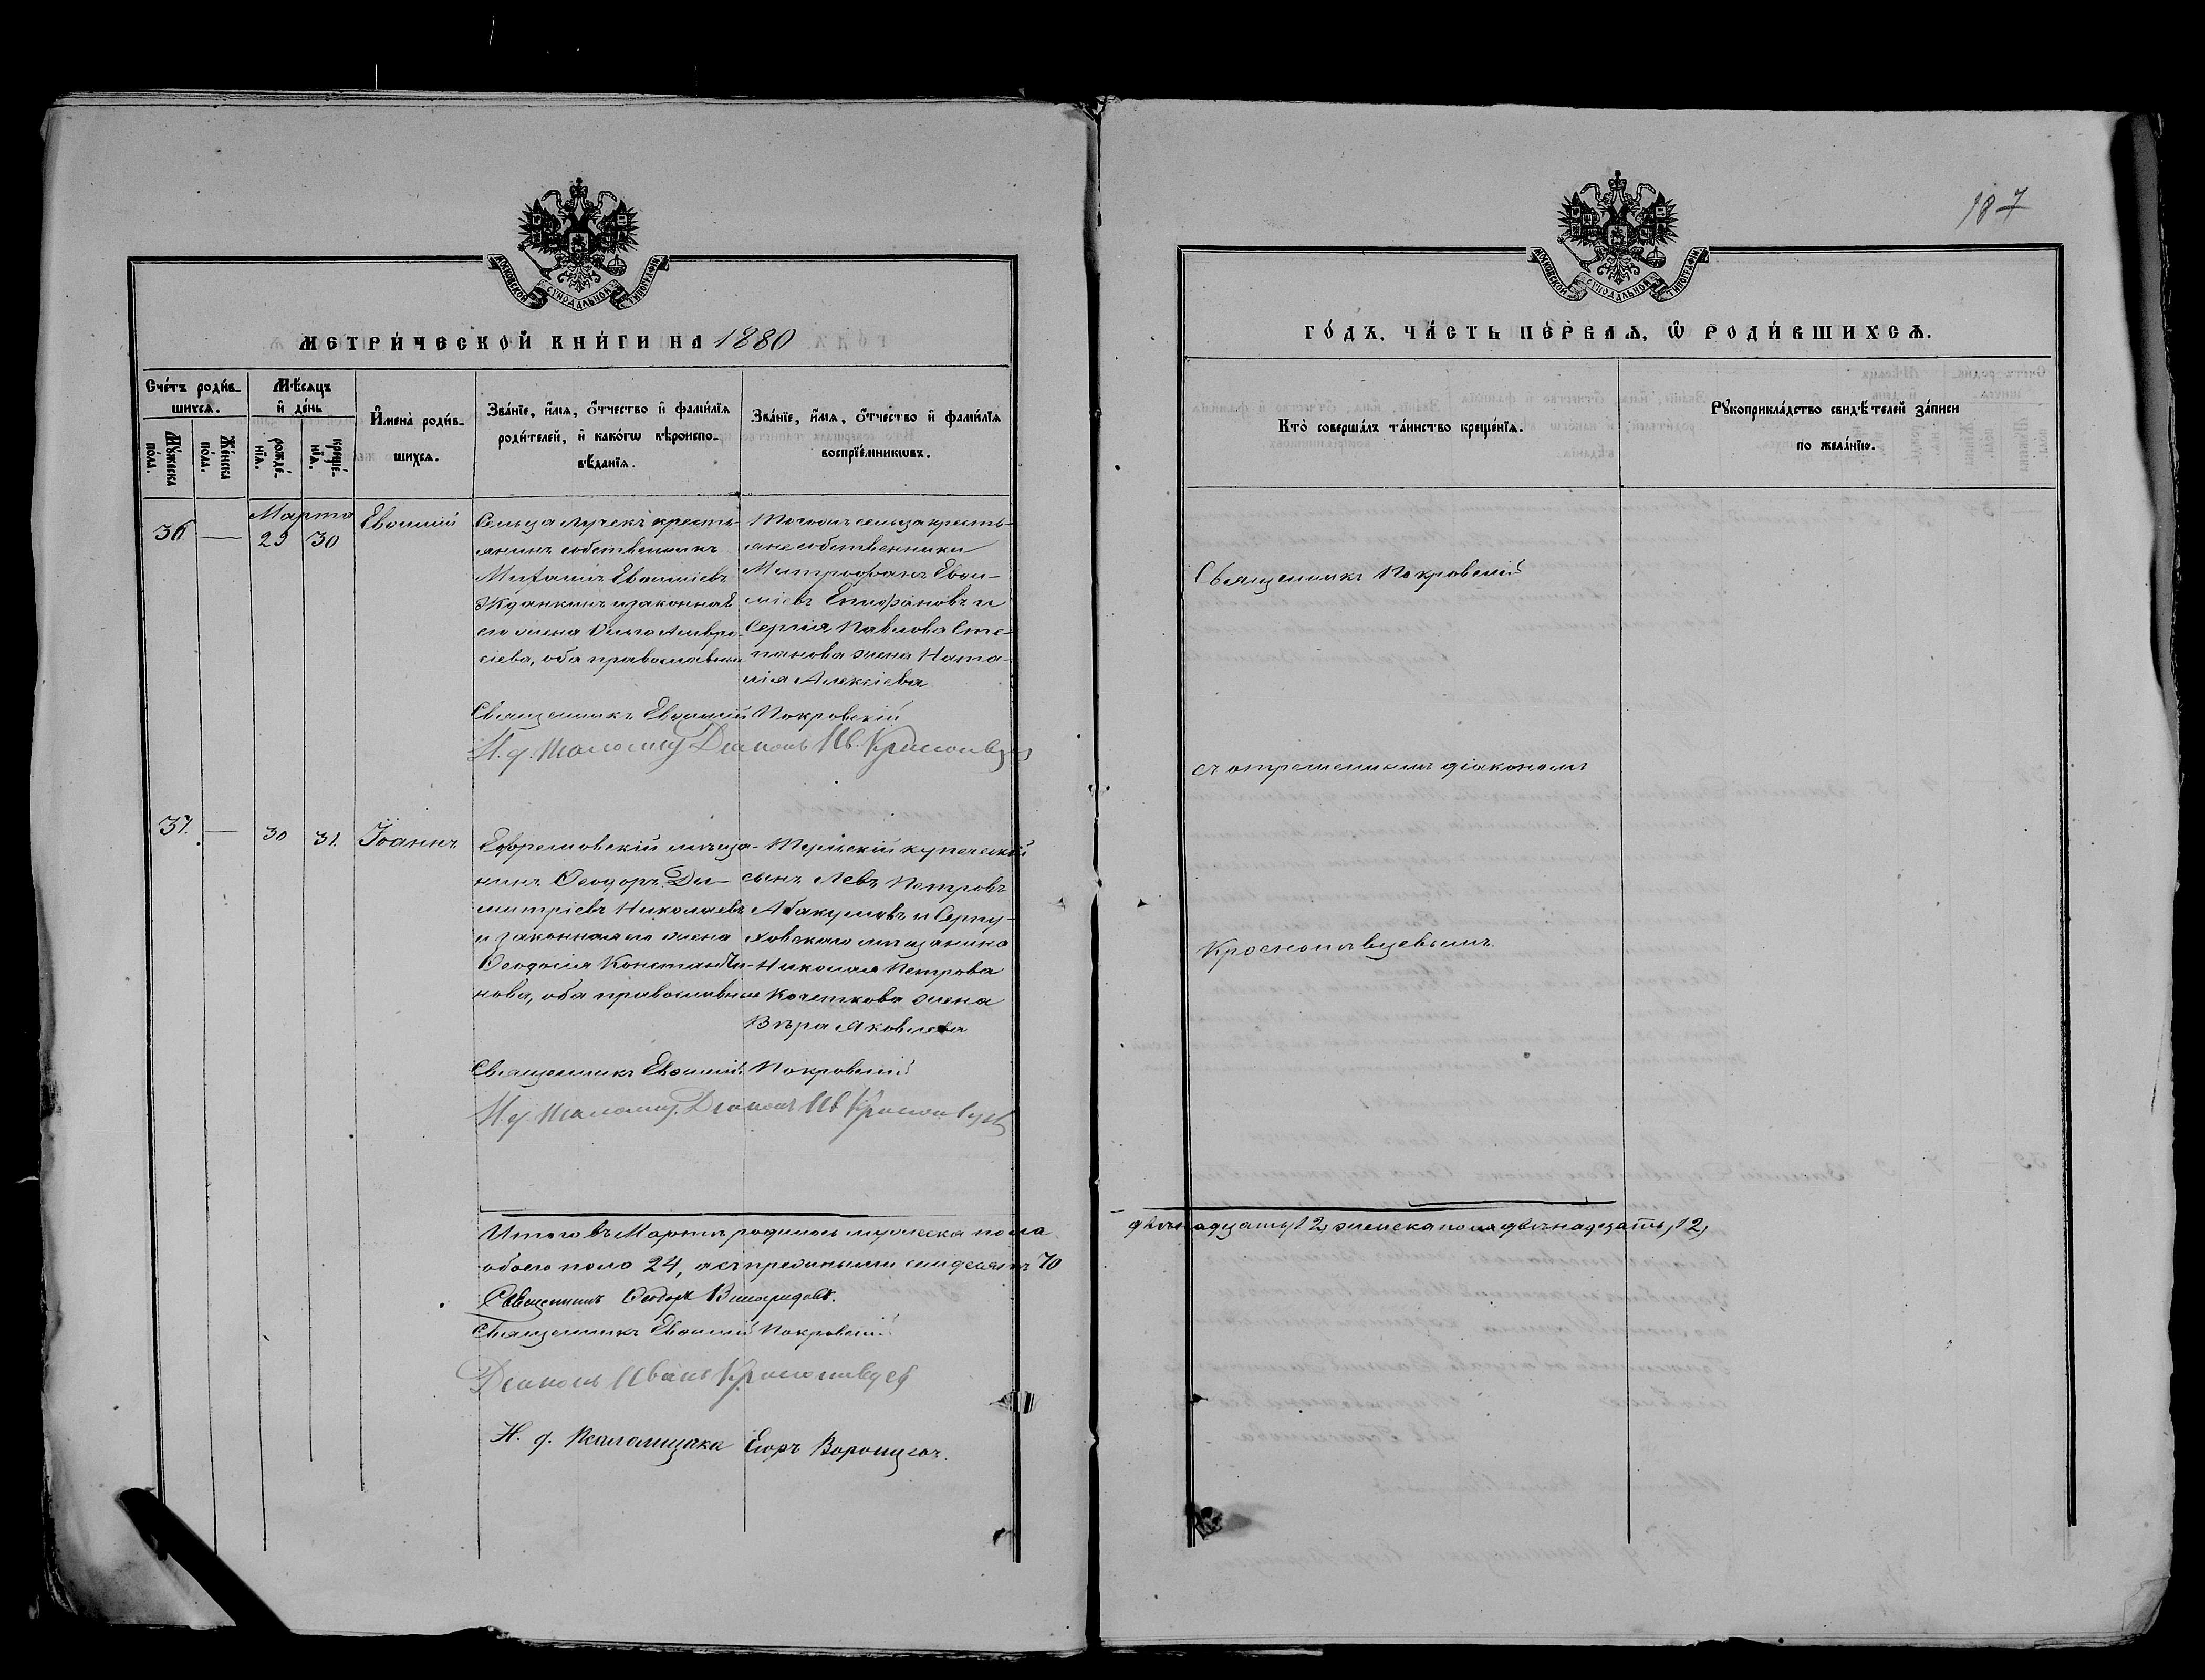 187
МОСКОВСКОЙ СУНОДАЛЬНОЙ ТИПОГРАФІИ
МЕТРИ́ЧЕСКОЙ КНИ́ГИ НА 1880
Сче́тъ роди́в-
шихсѧ.
Мѣ́сѧцъ
и҆ де́нь
Мꙋ́жеска
по́ла.
Же́нска
по́ла.
рожде́-
нїѧ.
креще́-
нїѧ.
И҆мена̀ роди́в-
шихсѧ.
Зва́нїе, и҆́мѧ, ѻ҆́тчество и҆ фами́лїѧ
роди́телей, и҆ како́гѡ вѣроиспо-
вѣ́данїѧ.
Зва́нїе, и҆́мѧ, ѻ҆́тчество и҆ фами́лїѧ
воспрїе́мникѡвъ.
Марта
36 — 29 30 Евѳимій
Сельца Лучекъ кресть-
янинъ собственникъ
Михаилъ Евѳиміевъ
Жданкинъ и законная
его жена Ольга Амвро-
сіева, оба православные
Того же сельца кресть-
яне собственники
Митрофанъ Евѳи-
міевъ Епифановъ и
Сергія Павлова Сте-
панова жена Ната-
лія Алексіева
Священникъ Евѳимій Покровскій
И. д. Псаломщ. Діаконъ Ив. Краснопѣвцевъ
37. — 30 31. Іоаннъ
Ефремовскій мѣща-
нинъ Ѳеодоръ Ди-
митріевъ Николаевъ
и законная его жена
Ѳеодосія Константи-
нова, оба православные
купеческій
сынъ Левъ Петровъ
Абакумовъ и Серпу-
ховскаго мѣщанина
Николая Петрова
Кочеткова жена
Вѣра Яковлева
Священникъ Евѳимій Покровскій
И. д. Псаломщ. Діаконъ Ив. Краснопѣвцевъ
Итого въ Мартѣ родилось мужеска пола
обоего пола 24, а съ прежними семьдесятъ 70
Священникъ Ѳеодоръ Виноградовъ.
Священникъ Евѳимій Покровскій
Діаконъ Иванъ Краснопѣвцевъ
И. д. Псаломщика Егоръ Воронцовъ.
МОСКОВСКОЙ СУНОДАЛЬНОЙ ТИПОГРАФІИ
ГО́ДЪ. ЧА́СТЬ ПЕ́РВАѦ, Ѡ҆ РОДИ́ВШИХСѦ.
Кто̀ соверша́лъ та́инство креще́нїѧ.
Рꙋкоприкла́дство свидѣ́телей за́писи
по жела́нїю.
Священникъ Покровскій
съ діакономъ
Краснопѣвцевымъ.
двѣнадцать, 12, женска пола двѣнадцать, 12,